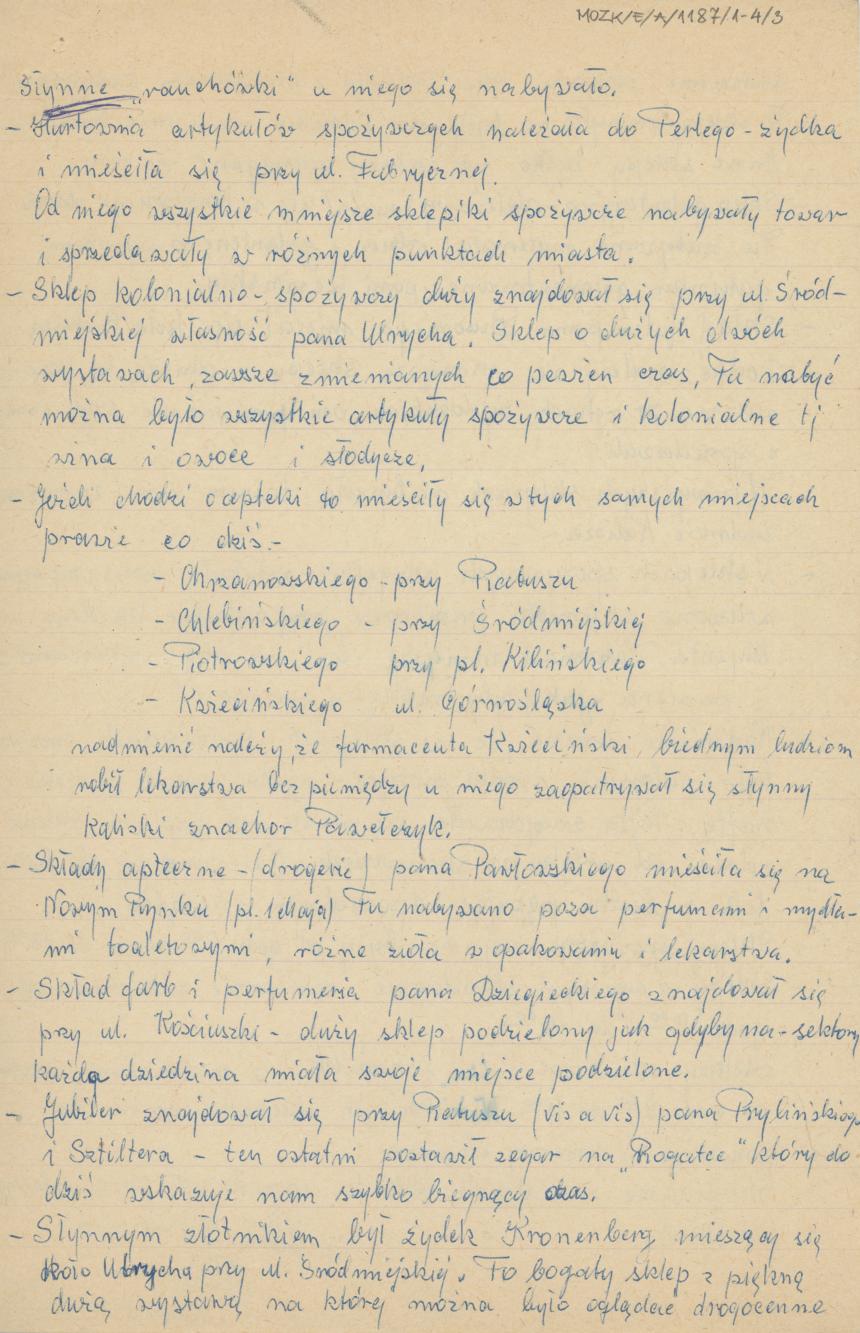 MOZK/E/A/1187/1-4/3
Słynne „rauchówki" u niego się nabywało.
- Hurtownia artykułów spożywczych należała do Perlego - żydka
i mieściła się przy ul. Fabrycznej.
Od niego wszystkie mniejsze sklepiki spożywcze nabywały towar
i sprzedawały w różnych punktach miasta.
- Sklep kolonialno-spożywczy duży znajdował się przy ul. Śród-
miejskiej własność pana Ulrycha. Sklep o dużych dwóch
wystawach, zawsze zmienianych co pewien czas, Tu nabyć
można było wszystkie artykuły spożywcze i kolonialne tj
wina i owoce i słodycze,
- Jeżeli chodzi o apteki to mieściły się w tych samych miejscach
prawie co dziś.-
- Chrzanowskiego - przy Ratuszu
- Chlebińskiego - przy Śródmiejskiej
- Piotrowskiego przy pl. Kilińskiego
- Kwiecińskiego ul. Górnośląska
nadmienić należy, że farmaceuta Kwieciński, biednym ludziom
robił lekarstwa bez pieniędzy u niego zaopatrywał się słynny
kaliski znachor Pawełczyk.
- Składy apteczne - (drogerie) pana Pawłowskiego mieściła się na
Nowym Rynku (pl. 1 Maja) Tu nabywano poza perfumami i mydła-
mi toaletowymi, różne zioła w opakowaniu i lekarstwa.
- Skład farb i perfumeria pana Dziegieckiego znajdował się
przy ul. Kościuszki - duży sklep podzielony jak gdyby na - sektory
każda dziedzina miała swoje miejsce podzielone.
- Jubiler znajdował się przy Ratuszu (vis a vis) pana Prylińskiego
i Sztiltera - ten ostatni postawił zegar na „Rogatce" który do
dziś wskazuje nam szybko biegnący czas.
- Słynnym złotnikiem był żydek Kronenberg mieszący się
koło Ulrycha przy ul. Śródmiejskiej. To bogaty sklep z piękną
dużą wystawą na której można było oglądać drogocenne